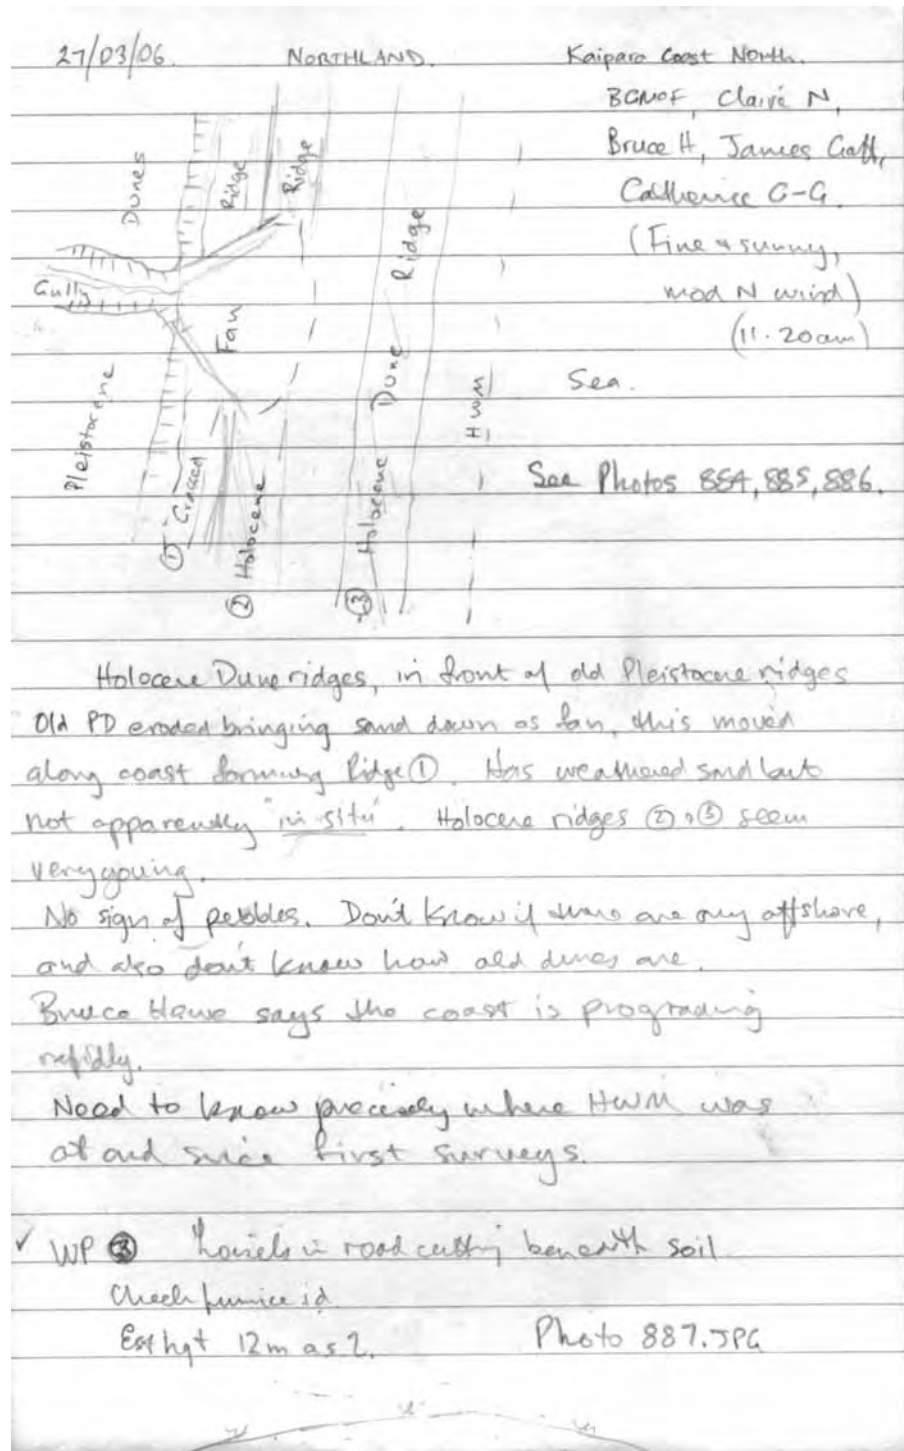 27/03/06. NORTHLAND. Kaipara Coast North.
BGMcF, Claire N,
Bruce H, James Goff,
Catherine C-G.
(Fine & sunny,
mod N wind)
(11.20am)
Dunes
Ridge
Ridge
Gully
Fan
Dune Ridge
Pleistocene
HWM
Sea.
See Photos 884, 885, 886.
① Grassed
② Holocene
③ Holocene
Holocene Dune ridges, in front of old Pleistocene ridges
Old PD eroded bringing sand down as fan, this moved
along coast forming Ridge ①. Has weathered sand but
not apparently "in situ". Holocene ridges ② & ③ seem
very young.
No sign of pebbles. Don't know if there are any offshore,
and also don't know how old dunes are.
Bruce Hawe says the coast is prograding
rapidly.
Need to know precisely where HWM was
at and since first surveys.
✓ WP ③ in road cutting beneath soil.
Check pumice id.
Est hgt 12m asl. Photo 887.JPG